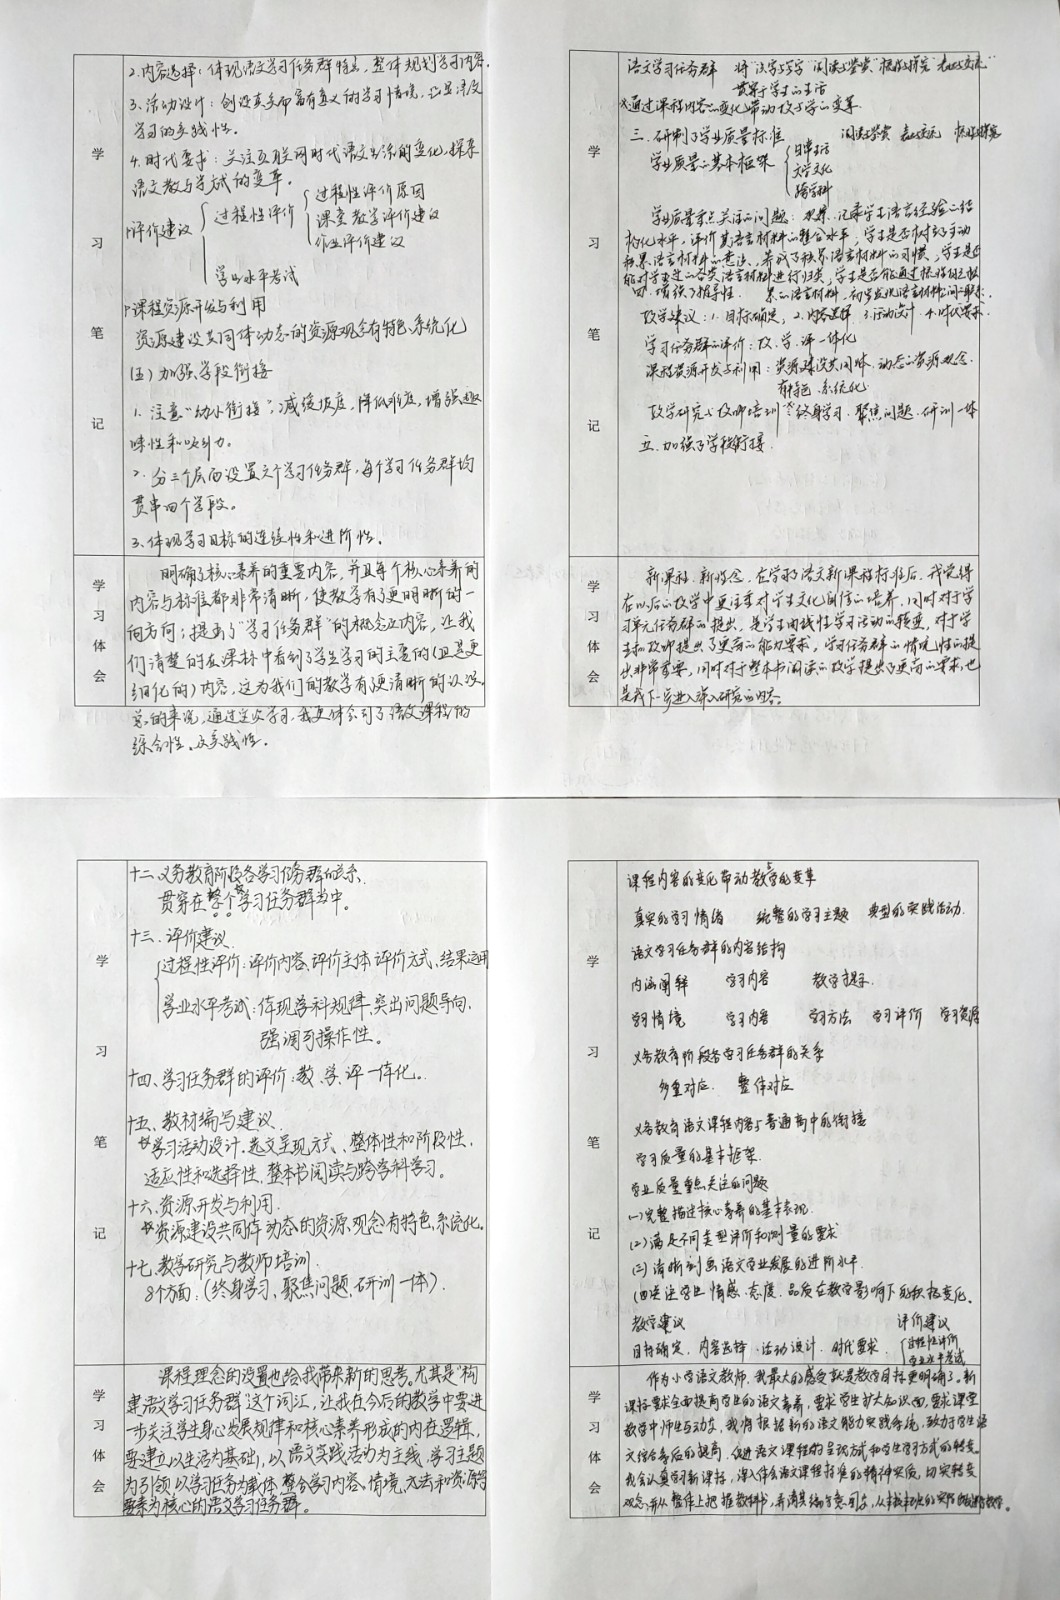 学习笔记
2.内容选择：体现语文学习任务群特点，整体规划学习内容.
3.活动设计：创设真实而富有意义的学习情境，凸显语文
学习的实践性。
4.时代要求：关注互联网时代语文生活的变化，探索
语文教与学方式的变革。
评价建议 过程性评价 过程性评价原因
课堂教学评价建议
作业评价建议
学业水平考试
课程资源开发与利用
资源建设共同体动态的资源观念有特色、系统化
(五)加强学段衔接
1.注意“幼小衔接”，减缓坡度，降低难度，增强趣
味性和吸引力。
2.分三个层面设置六个学习任务群，每个学习任务群均
贯串四个学段。
3.体现学习目标的连续性和进阶性。
学习体会
明确了核心素养的重要内容，并且每个核心素养的
内容与标准都非常清晰，使教学有了更明晰的一
个方向；提出了“学习任务群”的概念及内容，让我
们清楚的在课标中看到了学生学习的主要的(且是更
细化的)内容，这为我们的教学有了更清晰的认识。
总的来说，通过这次学习，我更体会到了语文课程的
综合性、及实践性。
学习笔记
语文学习任务群 将“识字与写字”“阅读与鉴赏”“梳理与探究”“表达与交流”
贯穿于学生的生活
通过课程内容的变化带动教与学的变革
三.研制了学业质量标准 阅读与鉴赏 表达与交流 梳理与探究
学业质量的基本框架 日常生活
文学文化
跨学科
学业质量重点关注的问题：观察、记录学生语言经验的结
构化水平，评价其语言材料的整合水平；学生是否树立了主动
积累语言材料的意识、养成了积累语言材料的习惯；学生是否
能对学过的各类语言材料进行归类；学生是否能通过梳理已积
四.增强了指导性. 累的语言材料，初步发现语言材料间的联系.
教学建议：1.目标确定，2.内容选择 3.活动设计 4.时代要求.
学习任务群的评价：教、学、评一体化
课程资源开发与利用：资源建设共同体.动态的资源观念.
有特色.系统化
教学研究与教师培训 终身学习.聚焦问题.研训一体
五.加强了学段衔接.
学习体会
新课程、新理念，在学习了语文新课程标准后，我觉得
在以后的教学中更注重对学生文化自信的培养，同时对于学
习单元任务群的提出，是学生由线性学习活动的转变，对于学
生和教师提出了更高的能力要求，学习任务群的情境性的提
出非常重要，同时对于整本书阅读的教学提出了更高的要求，也
是我下一步进入深入研究的内容。
学习笔记
十二、义务教育阶段各学习任务群的关系.
贯穿在整个学习任务群当中。
十三、评价建议
过程性评价：评价内容、评价主体 评价方式、结果运用
学业水平考试：体现学科规律，突出问题导向，
强调可操作性。
十四、学习任务群的评价：教、学、评一体化。
十五、教材编写建议
学习活动设计、选文呈现方式、整体性和阶段性，
适应性和选择性，整本书阅读与跨学科学习。
十六、资源开发与利用
资源建设共同体 动态的资源观念有特色、系统化。
十七、教学研究与教师培训
8个方面：(终身学习、聚焦问题、研训一体)．
学习体会
课程理念的设置也给我带来新的思考。尤其是“构
建语文学习任务群”这个词汇，让我在今后的教学中要进一
步关注学生身心发展规律和核心素养形成的内在逻辑，
要建立以生活为基础，以语文实践活动为主线，学习主题
为引领，以学习任务为载体，整合学习内容、情境、方法和资源等
要素为核心的语文学习任务群。
学习笔记
课程内容的变化带动教与学的变革
真实的学习情境 统整的学习主题 典型的实践活动.
语文学习任务群的内容结构
内涵阐释 学习内容 教学提示.
学习情境 学习内容 学习方法 学习评价 学习资源
义务教育阶段各学习任务群的关系
多重对应. 整体对应
义务教育语文课程内容与普通高中的衔接
学习质量的基本框架.
学业质量重点关注的问题
(一)完整描述核心素养的基本表现.
(二)满足不同类型评价和测量的要求
(三)清晰刻画语文学业发展的进阶水平.
(四)关注学生情感.态度.品质在教学影响下的积极变化.
教学建议 评价建议
目标确定、内容选择、活动设计、时代要求. 过程性评价
学业水平考试
学习体会
作为小学语文教师，我最大的感受就是教学目标更明确了。新
课标要求全面提高学生的语文素养，要求学生扩大知识面，要求课堂
教学中师生互动，我将根据新的语文能力实践系统，致力于学生语
文综合素质的提高、促进语文课程的呈现方式和学生学习方式的转变。
我会认真学习新课标，深入体会语文课程标准的精神实质，切实转变
观念，并从整体上把握教科书，弄清其编写意图